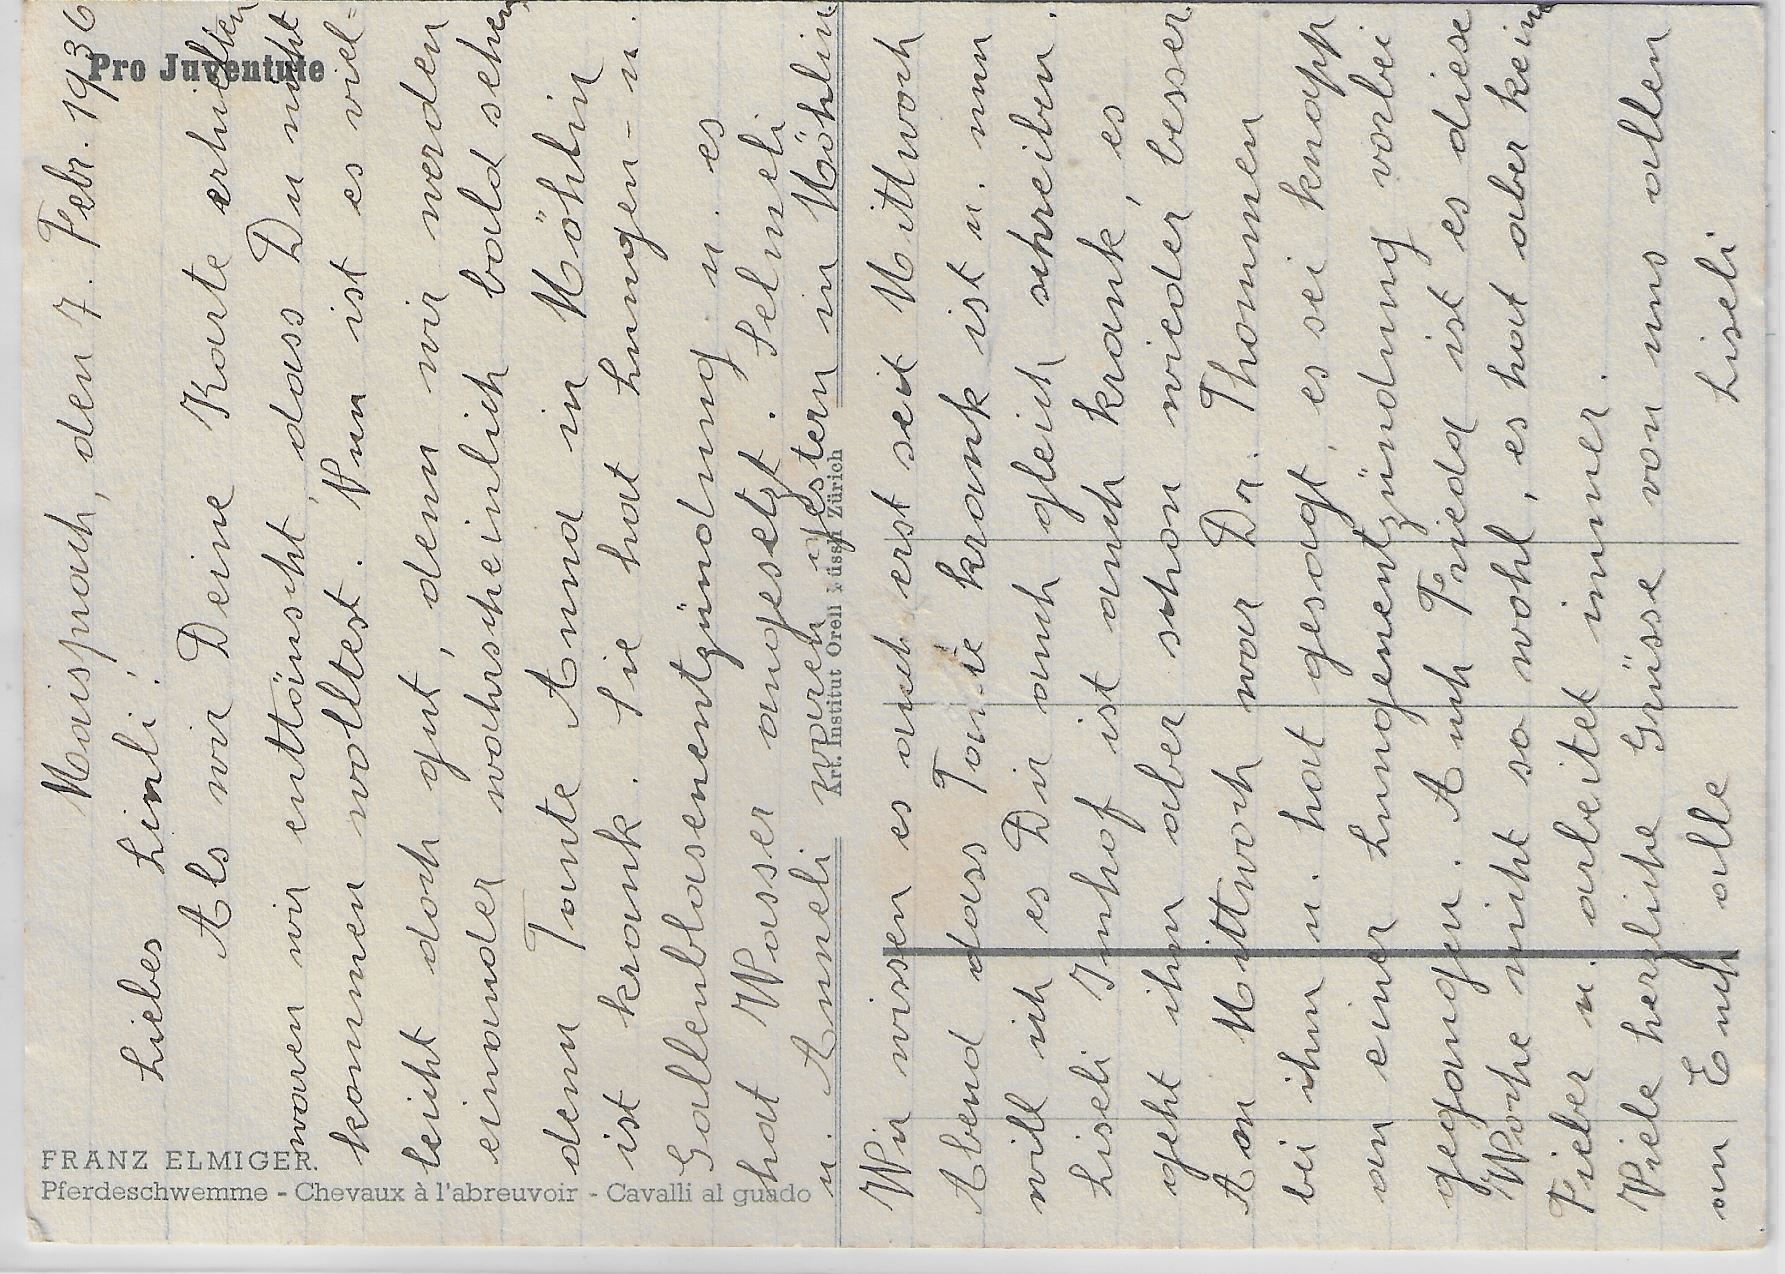 Pro Juventute
Maisprach, den 7. Febr. 1936
Liebes Lineli!
Als wir Deine Karte erhielten
waren wir enttäuscht, dass Du nicht
kommen wolltest. Nun ist es viel=
leicht doch gut, denn wir werden
einander wahrscheinlich bald sehen
denn Tante Anna in Möhlin
ist krank. Sie hat Lungen- u.
Gallenblasenentzündung u. es
hat Wasser angesetzt. Selmeli
u. Anneli waren gestern in Möhlin.
Wir wissen es auch erst seit Mittwoch
Abend dass Tante krank ist u. nun
will ich es Dir auch gleich schreiben.
Liseli Imhof ist auch krank, es
geht ihm aber schon wieder besser.
Am Mittwoch war Dr. Thommen
bei ihm u. hat gesagt, es sei knapp
an einer Lungenentzündung vorbei
gegangen. Auch Frieda ist es diese
Woche nicht so wohl, es hat aber kein
Fieber u. arbeitet immer.
Viele herzliche Grüsse von uns allen
an Euch alle Liseli
FRANZ ELMIGER.
Pferdeschwemme - Chevaux à l'abreuvoir - Cavalli al guado
Art. Institut Orell Füssli Zürich